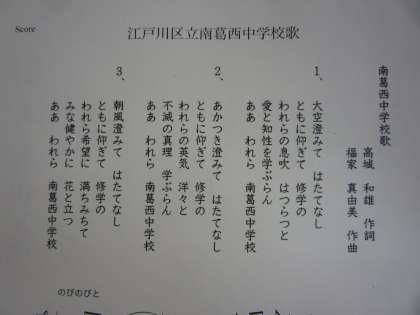 Score
江戸川区立南葛西中学校歌
南葛西中学校歌
高城 和雄 作詞
福家 真由美 作曲
1、大空澄みて はたてなし
ともに仰ぎて 修学の
われらの息吹 はつらつと
愛と知性を学ぶらん
ああ われら 南葛西中学校
2、あかつき澄みて はたてなし
ともに仰ぎて 修学の
われらの英気 洋々と
不滅の真理 学ぶらん
ああ われら 南葛西中学校
3、朝風澄みて はたてなし
ともに仰ぎて 修学の
われら希望に 満ちみちて
みな健やかに 花と立つ
ああ われら 南葛西中学校
のびのびと